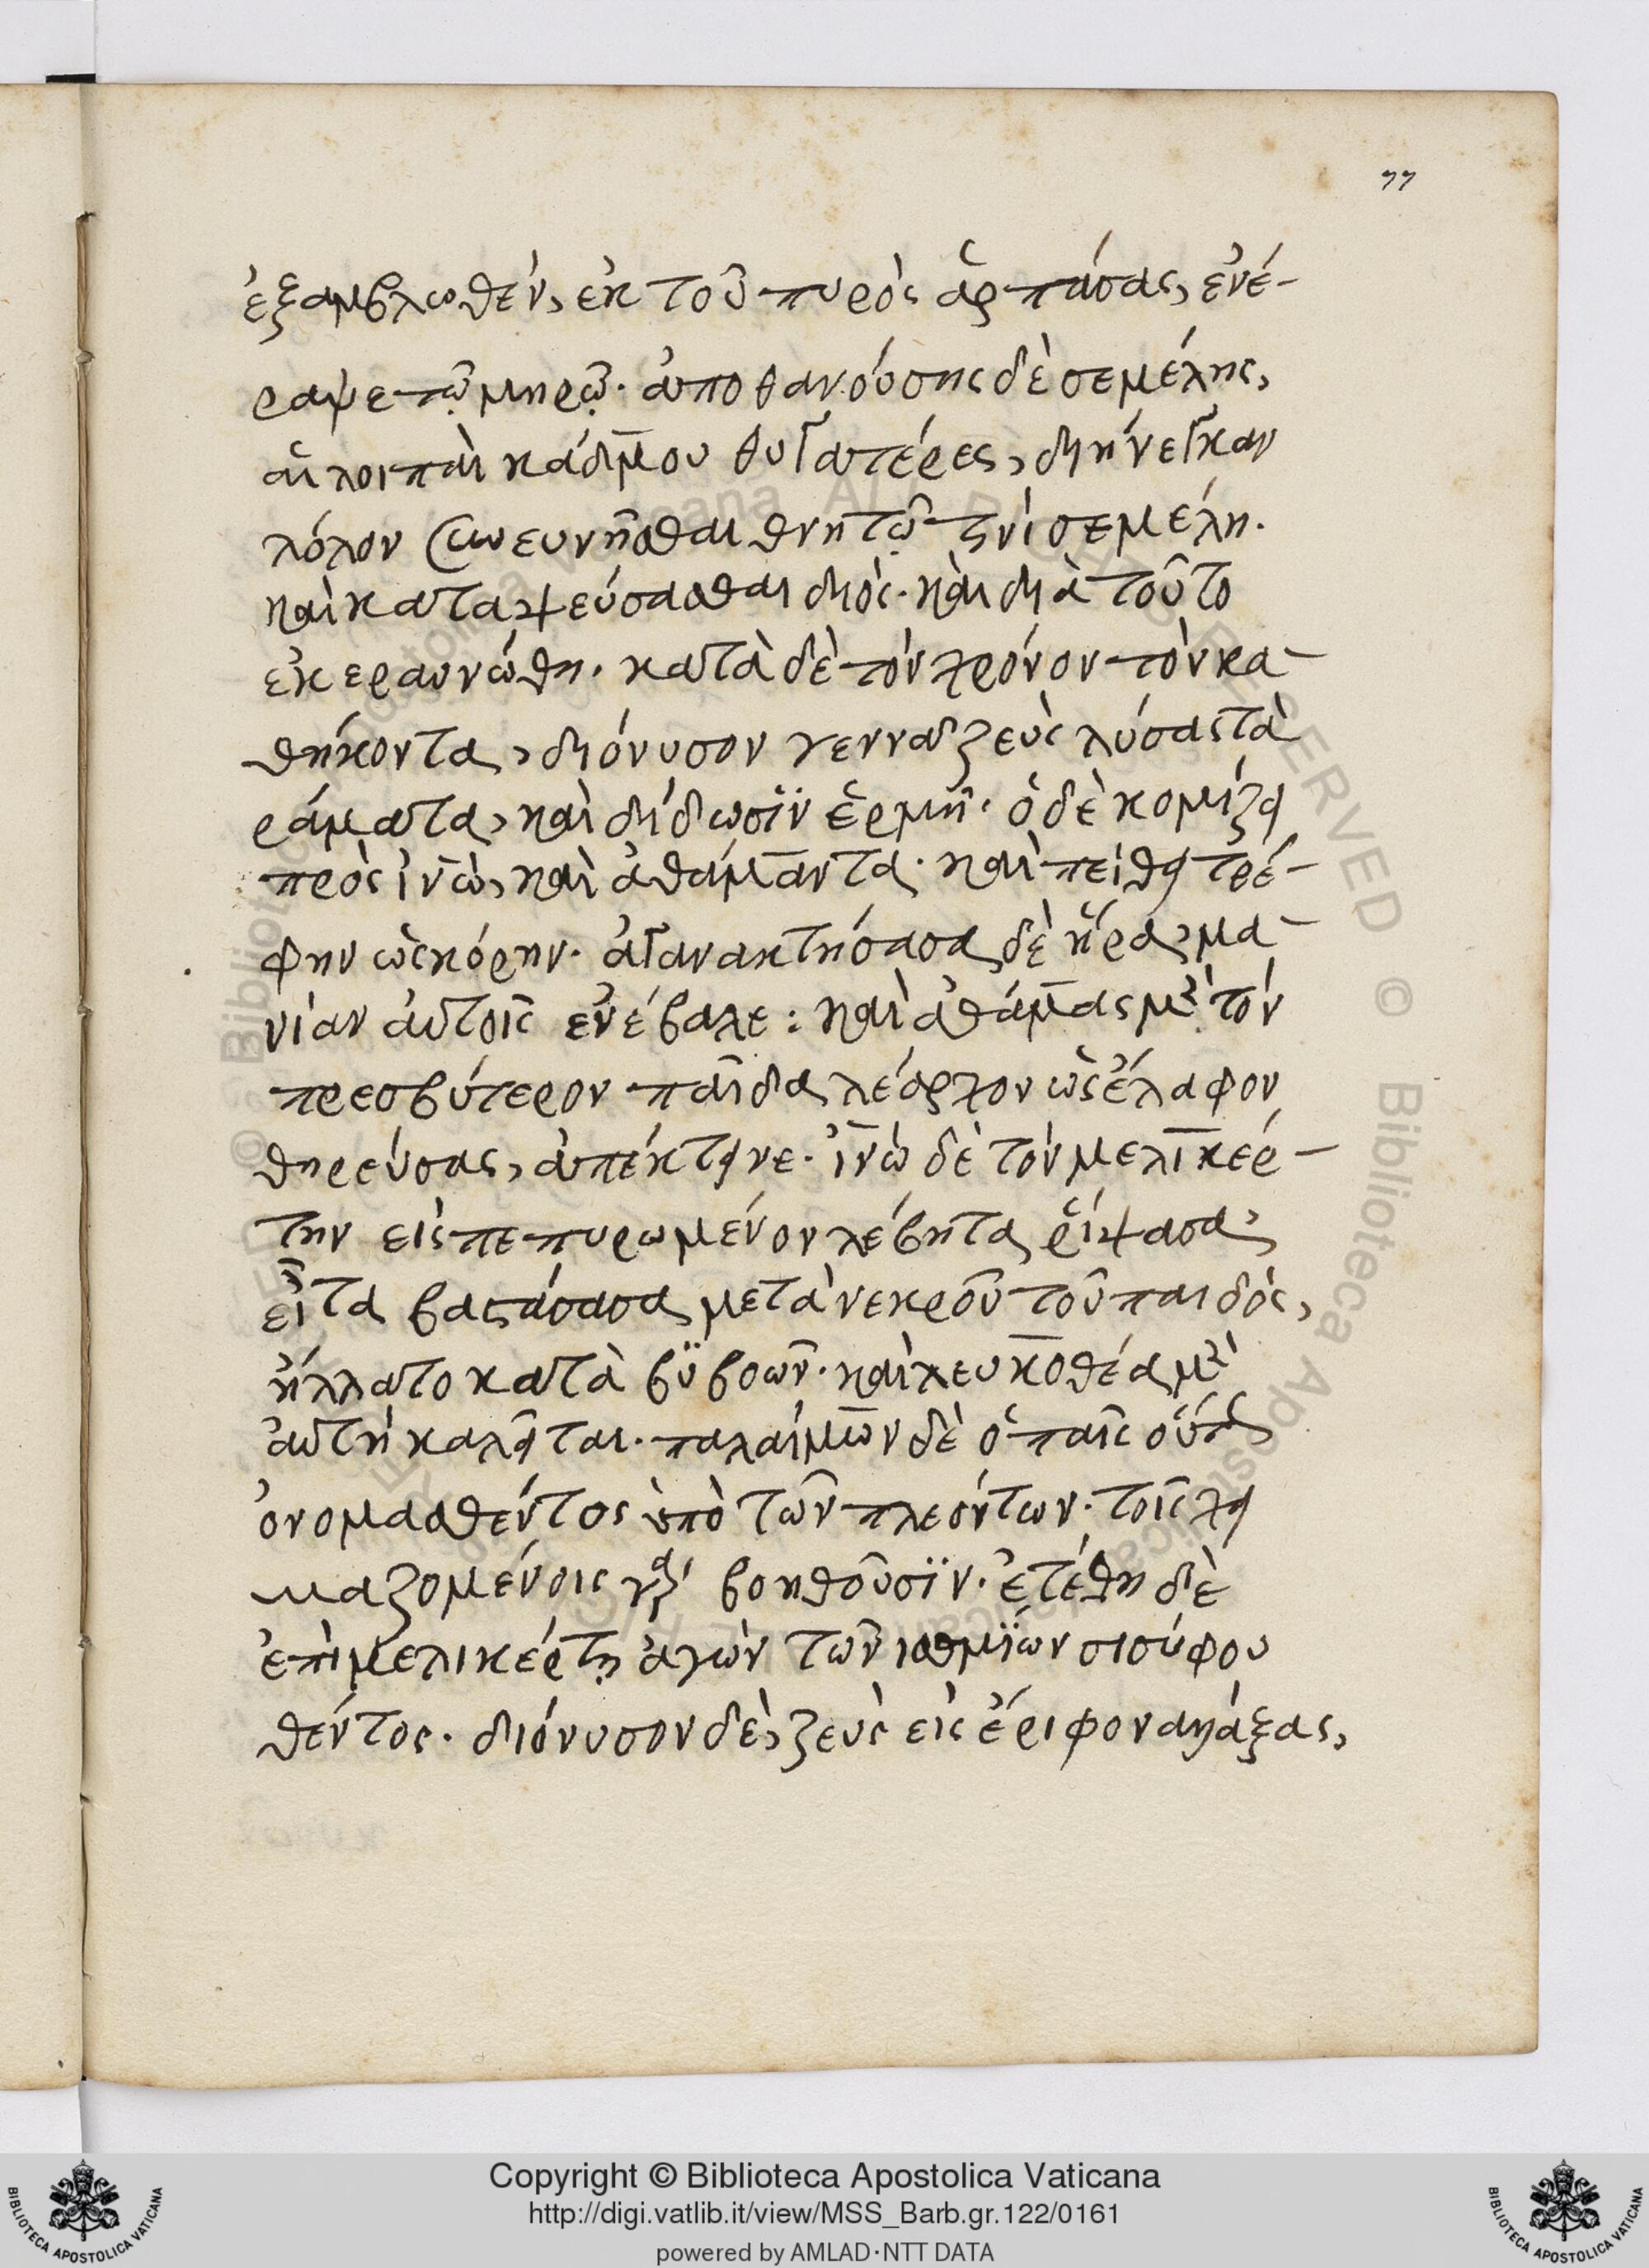 77
ἐξαμβλωθέν, ἐκ τοῦ πυρὸς ἁρπάσας, ἐνέ-
ραψε τῷ μηρῷ. ἀποθανούσης δὲ σεμέλης,
αἱ λοιπαὶ κάδμου θυγατέρες, διήνεγκαν
λόγον συνευνῆσθαι θνητῷ τινὶ σεμέλη.
καὶ καταψεύσασθαι διὸς. καὶ διὰ τοῦτο
ἐκεραυνώθη. κατὰ δὲ τὸν χρόνον τὸν κα-
θήκοντα, διόνυσον γεννᾶ ζεὺς λύσας τὰ
ράματα, καὶ δίδωσϊν ἑρμῆ. ὁ δὲ κομίζει
πρὸς ἰνὼ, καὶ ἀθάμαντα. καὶ πείθει τρέ-
φην ὡς κόρην. ἀγανακτήσασα δὲ ἥρα, μα-
νίαν αὐτοῖς ἐνέβαλε: καὶ ἀθάμας μὲν τὸν
πρεσβύτερον παῖδα λέαρχον ὡς ἔλαφον
θηρεύσας, ἀπέκτεινε. ἰνὼ δὲ τὸν μελικέρ-
την εἰς πεπυρωμένον λέβητα ῥίψασα,
εἶτα βαστάσασα μετὰ νεκροῦ τοῦ παιδός,
ἥλλατο κατὰ βϋβοῶν. καὶ λευκοθέα μὲν
αὐτὴ καλεῖται. παλαίμων δὲ ὁ παῖς οὕτως
ὀνομασθέντος ὑπὸ τῶν πλεόντων. τοῖς χει
μαζομένοις γὰρ βοηθοῦσϊν. ἐτέθη δὲ
ἐπὶ μελικέρτῃ ἀγὼν τῶν ἰσθμϊων σισύφου
θέντος. διόνυσον δὲ, ζεὺς εἰς ἔριφον ἀλλάξας,
Copyright © Biblioteca Apostolica Vaticana
http://digi.vatlib.it/view/MSS_Barb.gr.122/0161
powered by AMLAD·NTT DATA
BIBLIOTECA APOSTOLICA VATICANA
BIBLIOTECA APOSTOLICA VATICANA